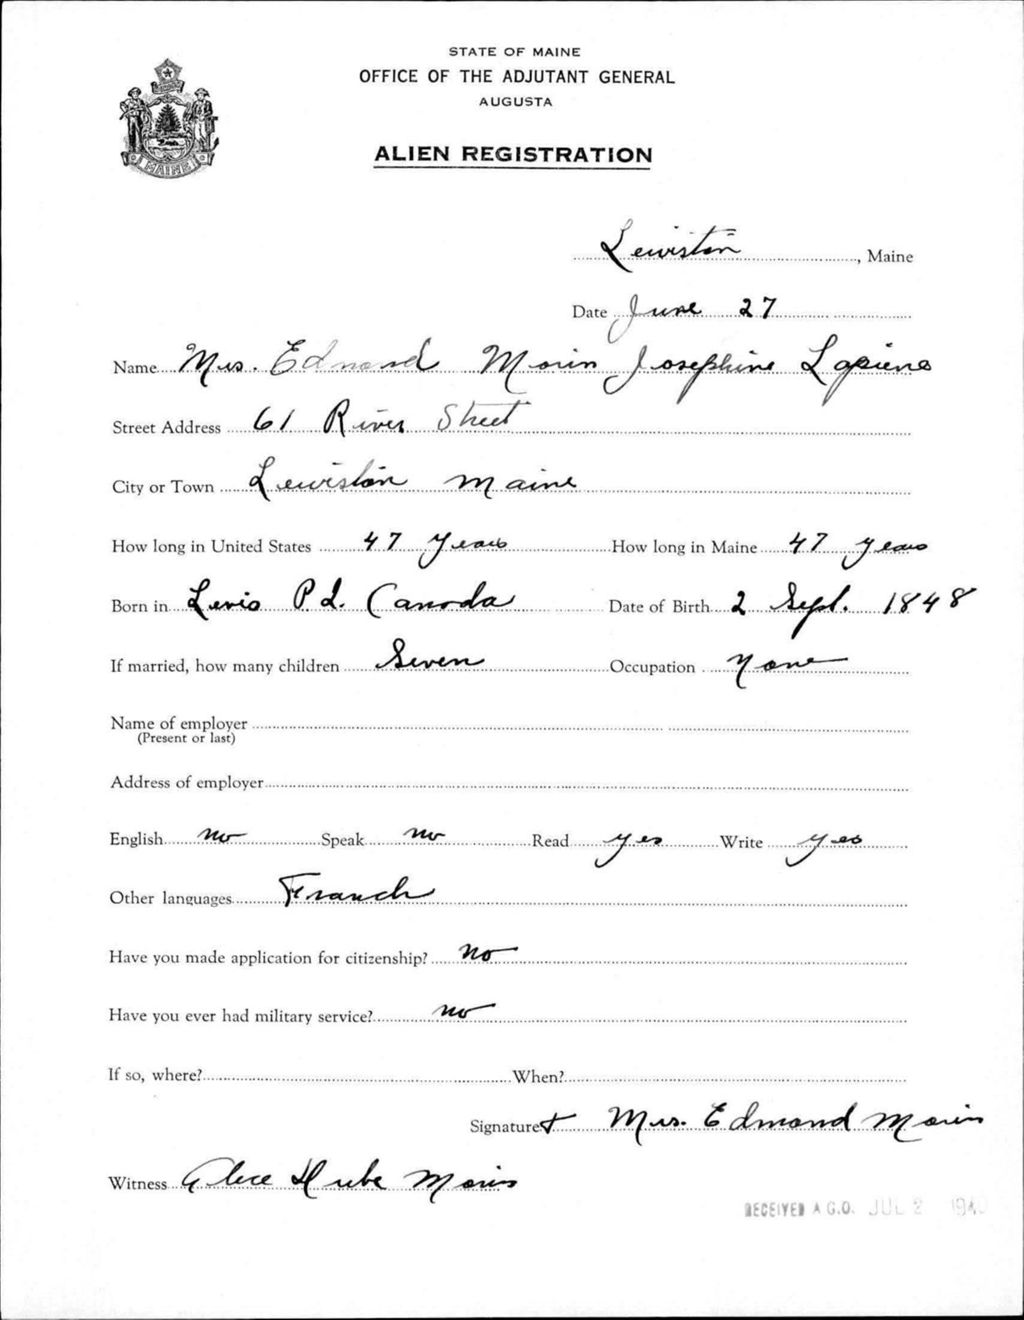 STATE OF MAINE
OFFICE OF THE ADJUTANT GENERAL
AUGUSTA
ALIEN REGISTRATION
MAINE
Lewiston, Maine
Date June 27
Name Mrs. Edmond Morin Josephine
Street Address 61 River Street
City or Town Lewiston Maine
How long in United States 47 years How long in Maine 47 years
Born in Levis P. Canada Date of Birth 2 Sept. 1848
If married, how many children Seven Occupation None
Name of employer
(Present or last)
Address of employer
English no Speak no Read yes Write yes
Other languages French
Have you made application for citizenship? no
Have you ever had military service? no
If so, where? When?
Signature Mrs. Edmond Morin
Witness Morin
RECEIVED A.G.O. JUL 2 1940